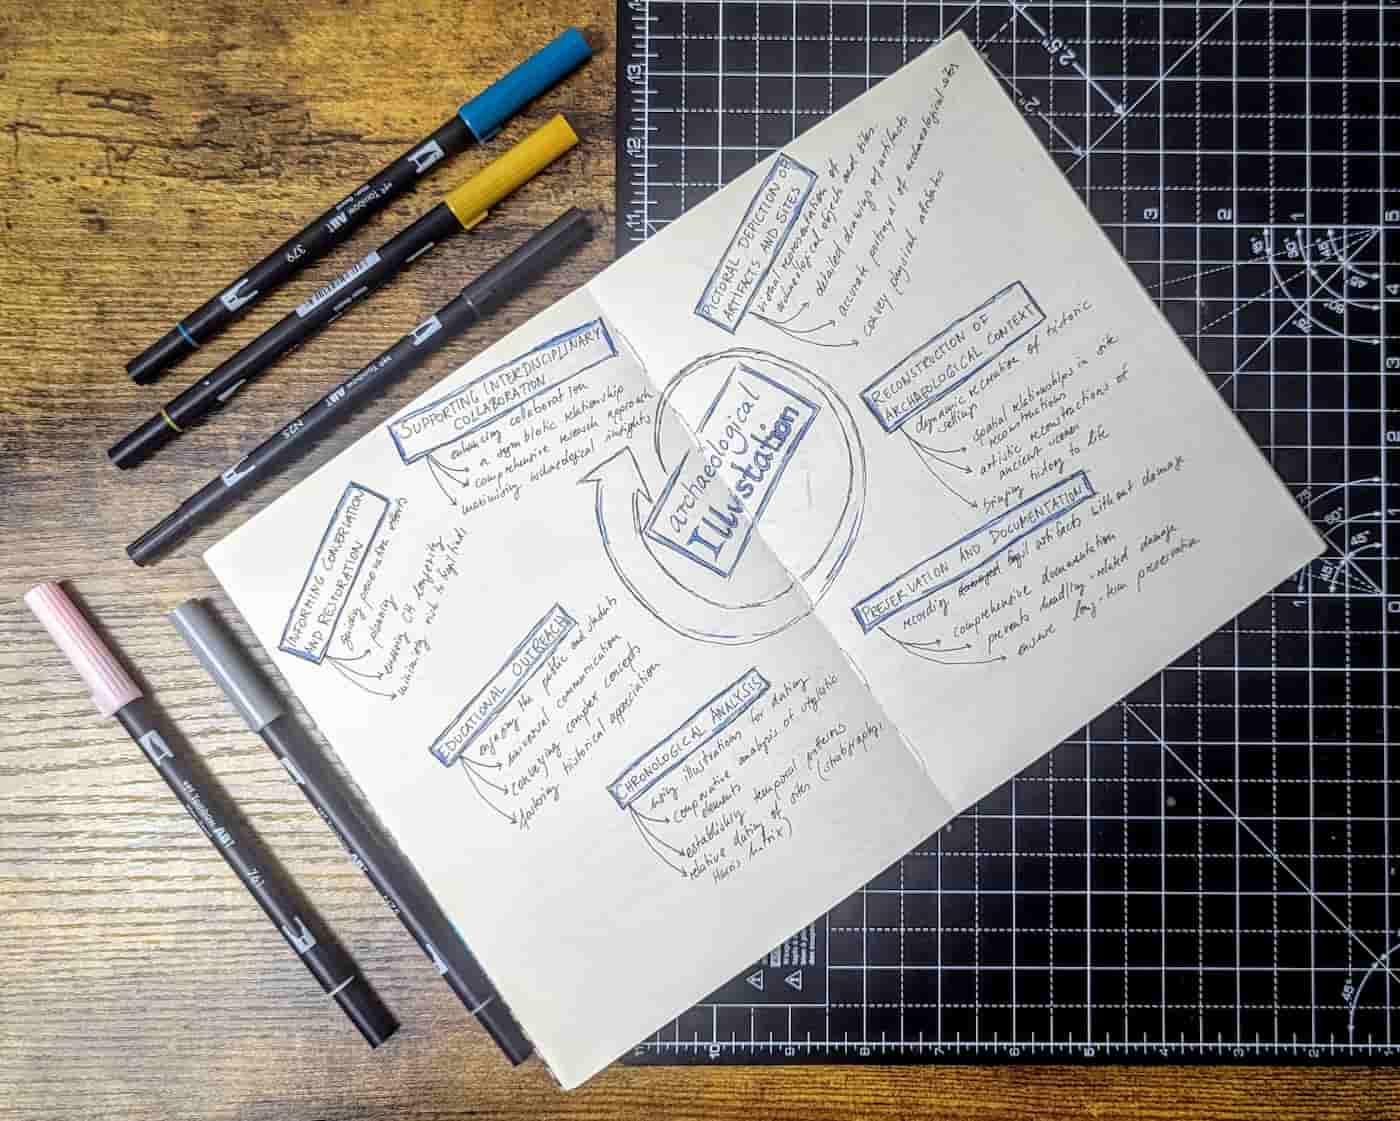 archaeological
Illustation
PICTORAL DEPICTION OF
ARTIFACTS AND SITES
visual representation of
archaeological objects and sites
detailed drawings of artifacts
accurate portrayl of archaeological sites
convey physical attributes
RECONSTRUCTION OF
ARCHAEOLOGICAL CONTEXT
dynamic recreation of historic
settings
spatial relationships in site
reconstructions
artistic reconstructions of
ancient
bringing history to life
PRESERVATION AND DOCUMENTATION
recording fragil artifacts without damage
comprehensive documentation
prevents handling-related damage
ensure long-term preservation
CHRONOLOGICAL ANALYSIS
using illustrations for dating
comparative analysis of stylistic
elements
establishing temporal patterns
relative dating of sites (stratigraphy,
Harris Matrix)
EDUCATIONAL OUTREACH
engaging the public and students
universal communication
conveying complex concepts
fostering historical appreciation
INFORMING CONSERVATION
AND RESTORATION
guiding preservation efforts
planning
ensuring CH longevity
minimizing risk to
SUPPORTING INTERDISCIPLINARY
COLLABORATION
enhancing collaboration
a symbiotic relationship
comprehensive research approach
maximizing archaeological insights
Tombow ABT
379
N25
Tombow ABT
761
13
12
11
10
9
8
7
6
5
4
3
2
2.5"
2"
3
2
1
4
5
45°